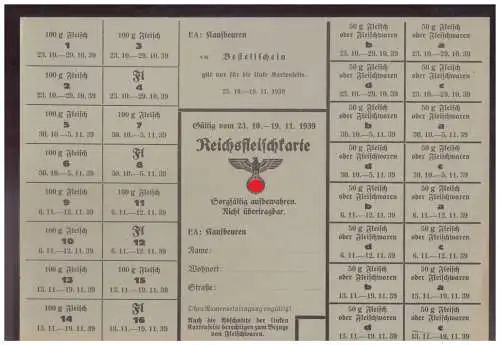 100 g Fleisch 100 g Fleisch
1 3
23. 10.-29. 10. 39 23. 10.-29. 10. 39
100 g Fleisch Fl
2 4
23. 10.-29. 10. 39 23. 10.-29. 10. 39
100 g Fleisch 100 g Fleisch
5 7
30. 10.-5. 11. 39 30. 10.-5. 11. 39
100 g Fleisch Fl
6 8
30. 10.-5. 11. 39 30. 10.-5. 11. 39
100 g Fleisch 100 g Fleisch
9 11
6. 11.-12. 11. 39 6. 11.-12. 11. 39
100 g Fleisch Fl
10 12
6. 11.-12. 11. 39 6. 11.-12. 11. 39
100 g Fleisch 100 g Fleisch
13 15
13. 11.-19. 11. 39 13. 11.-19. 11. 39
100 g Fleisch Fl
14 16
13. 11.-19. 11. 39 13. 11.-19. 11. 39
EA: Kaufbeuren
Bestellschein
gilt nur für die linke Kartenseite.
23. 10.-19. 11. 1939
Gültig vom 23. 10.-19. 11. 1939
Reichsfleischkarte
Sorgfältig aufbewahren.
Nicht übertragbar.
EA: Kaufbeuren
Name:
Wohnort:
Straße:
Ohne Namenseintragung ungültig!
Auch die Abschnitte der linken
Kartenseite berechtigen zum Bezuge
von Fleischwaren.
50 g Fleisch 50 g Fleisch
oder Fleischwaren oder Fleischwaren
b a
23. 10.-29. 10. 39 23. 10.-29. 10. 39
50 g Fleisch 50 g Fleisch
oder Fleischwaren oder Fleischwaren
d c
23. 10.-29. 10. 39 23. 10.-29. 10. 39
50 g Fleisch 50 g Fleisch
oder Fleischwaren oder Fleischwaren
b a
30. 10.-5. 11. 39 30. 10.-5. 11. 39
50 g Fleisch 50 g Fleisch
oder Fleischwaren oder Fleischwaren
d c
30. 10.-5. 11. 39 30. 10.-5. 11. 39
50 g Fleisch 50 g Fleisch
oder Fleischwaren oder Fleischwaren
b a
6. 11.-12. 11. 39 6. 11.-12. 11. 39
50 g Fleisch 50 g Fleisch
oder Fleischwaren oder Fleischwaren
d c
6. 11.-12. 11. 39 6. 11.-12. 11. 39
50 g Fleisch 50 g Fleisch
oder Fleischwaren oder Fleischwaren
b a
13. 11.-19. 11. 39 13. 11.-19. 11. 39
50 g Fleisch 50 g Fleisch
oder Fleischwaren oder Fleischwaren
d c
13. 11.-19. 11. 39 13. 11.-19. 11. 39